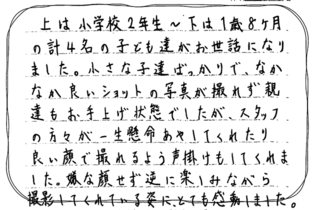 上は小学校2年生～下は1歳8ヶ月
の計4名の子ども達がお世話になり
ました。小さな子達ばっかりで、なか
なか良いショットの写真が撮れず親
達もお手上げ状態でしたが、スタッフ
の方々が一生懸命あやしてくれたり
良い顔で撮れるよう声掛けもしてくれま
した。嫌な顔せず逆に楽しみながら
撮影してくれている姿に、とても感動しました。